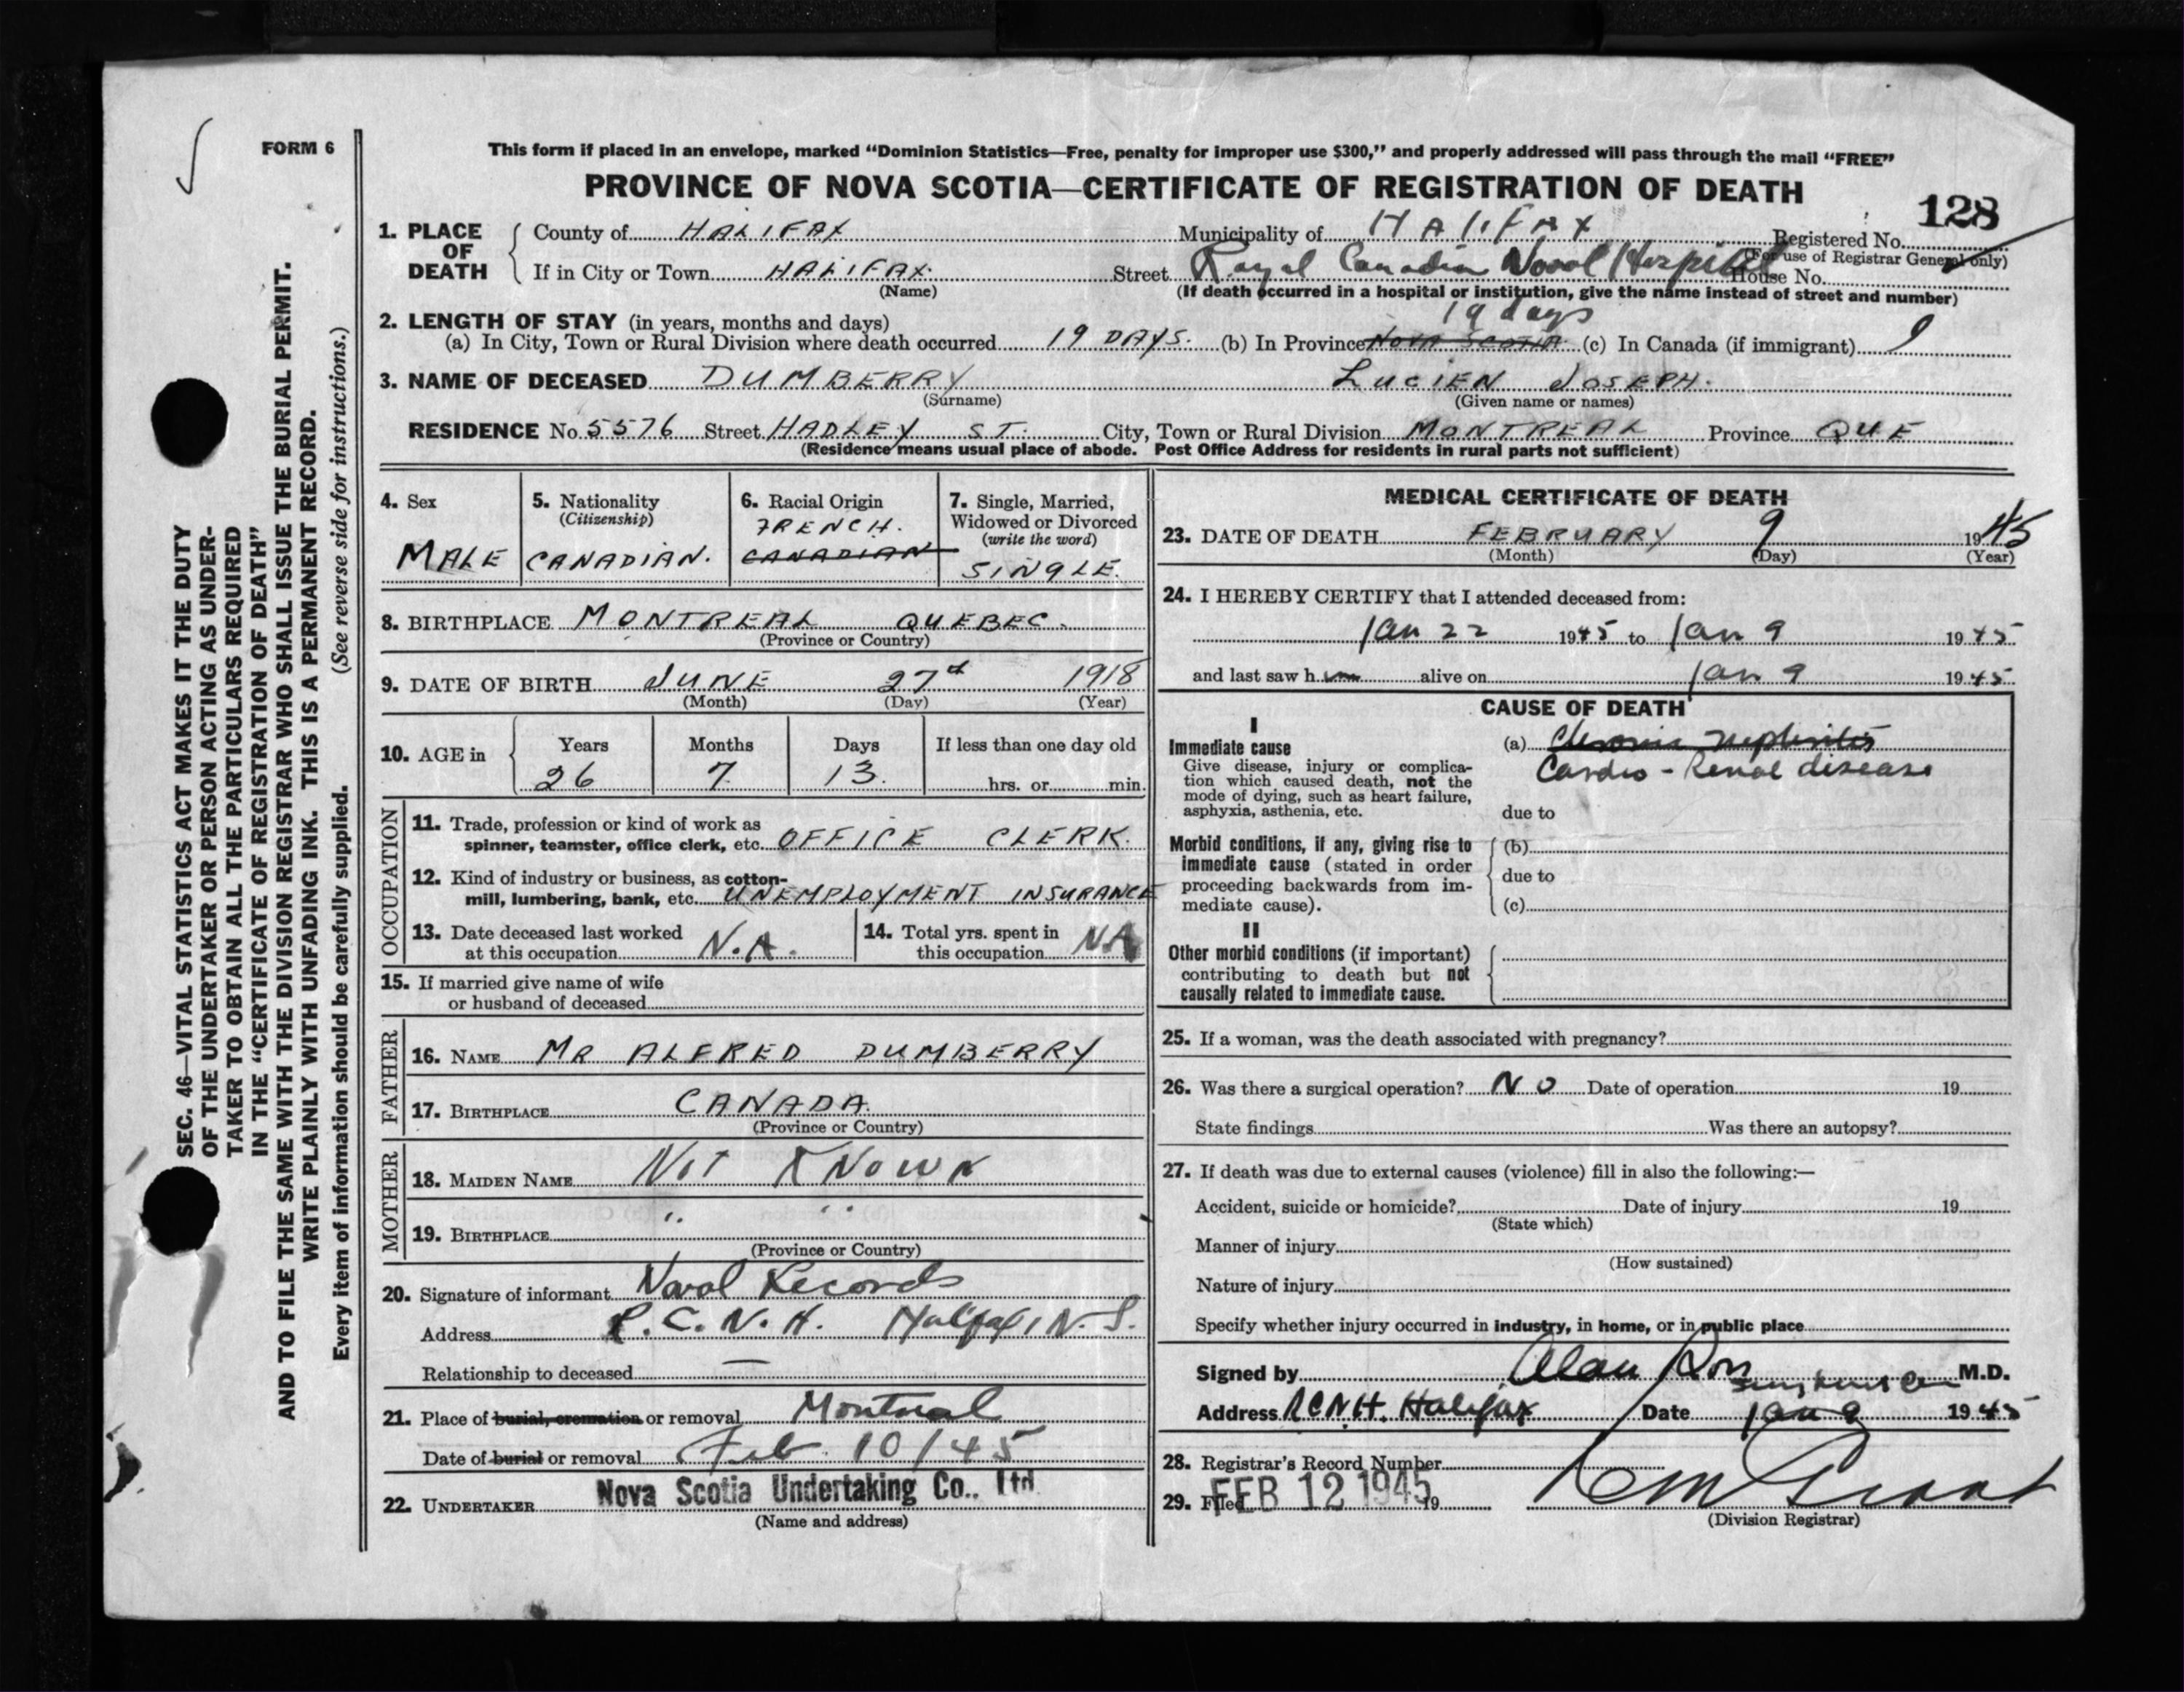 FORM 6
This form if placed in an envelope, marked “Dominion Statistics—Free, penalty for improper use $300,” and properly addressed will pass through the mail “FREE”
PROVINCE OF NOVA SCOTIA—CERTIFICATE OF REGISTRATION OF DEATH
128
1. PLACE OF DEATH
County of HALIFAX Municipality of HALIFAX Registered No.
(For use of Registrar General only)
If in City or Town HALIFAX. Street Royal Canadian Naval Hospital House No.
(Name) (If death occurred in a hospital or institution, give the name instead of street and number)
2. LENGTH OF STAY (in years, months and days) 19 days
(a) In City, Town or Rural Division where death occurred 19 DAYS. (b) In Province NOVA SCOTIA (c) In Canada (if immigrant)
3. NAME OF DECEASED DUMBERRY LUCIEN JOSEPH.
(Surname) (Given name or names)
RESIDENCE No. 5576 Street HADLEY ST. City, Town or Rural Division MONTREAL Province QUE
(Residence means usual place of abode. Post Office Address for residents in rural parts not sufficient)
4. Sex
MALE
5. Nationality
(Citizenship)
CANADIAN.
6. Racial Origin
FRENCH.
CANADIAN
7. Single, Married,
Widowed or Divorced
(write the word)
SINGLE.
8. BIRTHPLACE MONTREAL QUEBEC.
(Province or Country)
9. DATE OF BIRTH JUNE 27th 1918
(Month) (Day) (Year)
10. AGE in Years Months Days If less than one day old
26 7 13 hrs. or min.
OCCUPATION
11. Trade, profession or kind of work as
spinner, teamster, office clerk, etc. OFFICE CLERK.
12. Kind of industry or business, as cotton-
mill, lumbering, bank, etc. UNEMPLOYMENT INSURANCE
13. Date deceased last worked
at this occupation N.A.
14. Total yrs. spent in
this occupation NA
15. If married give name of wife
or husband of deceased
FATHER
16. NAME MR ALFRED DUMBERRY
17. BIRTHPLACE CANADA.
(Province or Country)
MOTHER
18. MAIDEN NAME NOT KNOWN
19. BIRTHPLACE " "
(Province or Country)
20. Signature of informant Naval Records
Address R.C.N.H. Halifax, N.S.
Relationship to deceased —
21. Place of burial, cremation or removal Montreal
Date of burial or removal Feb. 10/45
22. UNDERTAKER Nova Scotia Undertaking Co., Ltd
(Name and address)
MEDICAL CERTIFICATE OF DEATH
23. DATE OF DEATH FEBRUARY 9 1945
(Month) (Day) (Year)
24. I HEREBY CERTIFY that I attended deceased from:
Jan 22 1945 to Jan 9 1945
and last saw him alive on Jan 9 1945
CAUSE OF DEATH
I
Immediate cause
Give disease, injury or complica-
tion which caused death, not the
mode of dying, such as heart failure,
asphyxia, asthenia, etc.
(a) Chronic nephritis
Cardio-Renal disease
due to
Morbid conditions, if any, giving rise to
immediate cause (stated in order
proceeding backwards from im-
mediate cause).
(b)
due to
(c)
II
Other morbid conditions (if important)
contributing to death but not
causally related to immediate cause.
25. If a woman, was the death associated with pregnancy?
26. Was there a surgical operation? NO Date of operation 19
State findings Was there an autopsy?
27. If death was due to external causes (violence) fill in also the following:—
Accident, suicide or homicide? Date of injury 19
(State which)
Manner of injury
(How sustained)
Nature of injury
Specify whether injury occurred in industry, in home, or in public place
Signed by Alan Ross M.D.
Address RCNH. Halifax Date Jan 9 1945
28. Registrar's Record Number
29. Filed FEB 12 1945 19
(Division Registrar)
SEC. 46—VITAL STATISTICS ACT MAKES IT THE DUTY
OF THE UNDERTAKER OR PERSON ACTING AS UNDER-
TAKER TO OBTAIN ALL THE PARTICULARS REQUIRED
IN THE “CERTIFICATE OF REGISTRATION OF DEATH”
AND TO FILE THE SAME WITH THE DIVISION REGISTRAR WHO SHALL ISSUE THE BURIAL PERMIT.
WRITE PLAINLY WITH UNFADING INK. THIS IS A PERMANENT RECORD.
Every item of information should be carefully supplied. (See reverse side for instructions.)